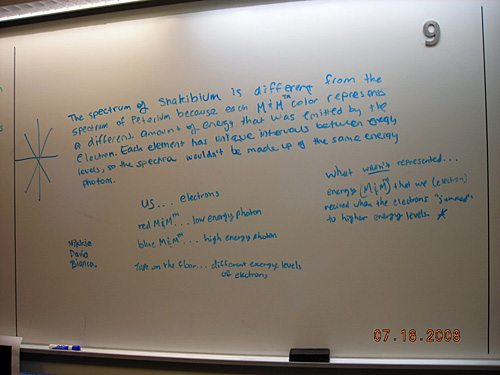 9
The spectrum of Shakibium is different from the
spectrum of Peterium because each M&M™ color represents
a different amount of energy that was emitted by the
electron. Each element has unique intervals between energy
levels, so the spectra wouldn't be made up of the same energy
photons.
US... electrons
red M&M™... low energy photon
blue M&M™... high energy photon
Tape on the floor... different energy levels
of electrons
What wasn't represented...
energy (M&M™) that we (electrons)
recived when the electrons "jumped"
to higher energy levels.
Nikkie
David
Bianca
07.18.2008